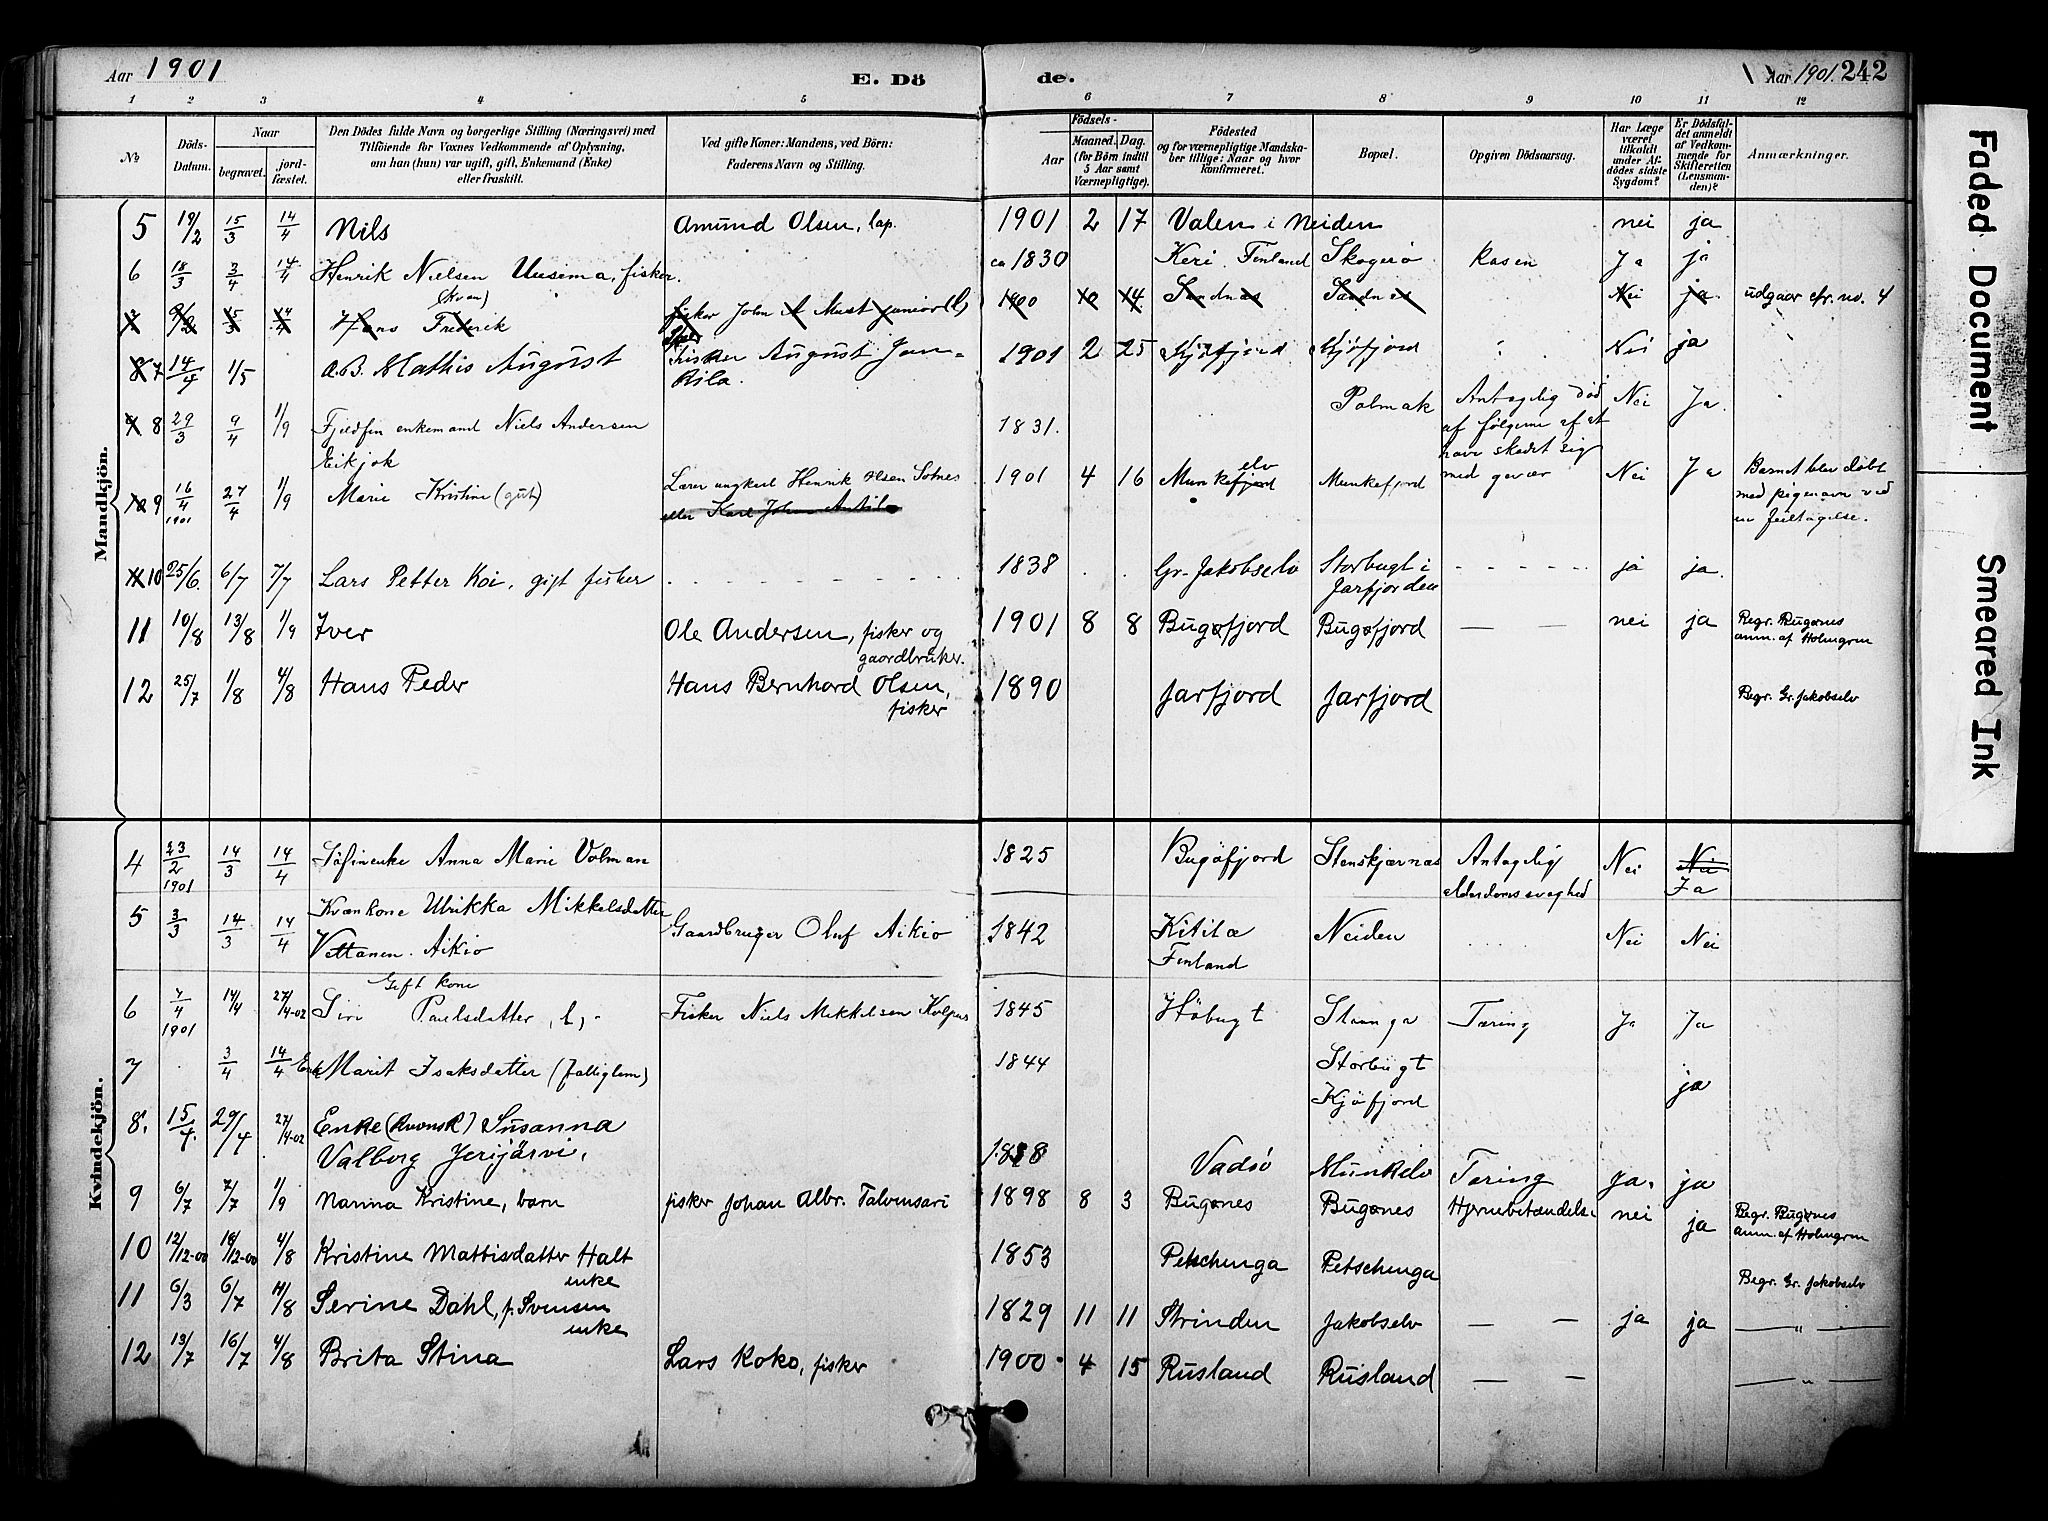 Aar 1901 E. Dö
de. Aar 1901. 242
1 2 3 4 5 6 7 8 9 10 11 12
No
Döds-Datum.
Naar
begravet.
jordfæstet.
Den Dödes fulde Navn og borgerlige Stilling (Næringsvei) med
Tilföiende for Voxnes Vedkommende af Oplysning,
om han (hun) var ugift, gift, Enkemand (Enke)
eller fraskilt.
Ved gifte Koner: Mandens, ved Börn:
Faderens Navn og Stilling.
Födsels-
Aar
Maaned. Dag.
(for Börn indtil
5 Aar samt
Værnepligtige).
Födested
og for værnepligtige Mandskaber tillige: Naar og hvor
konfirmeret.
Bopæl.
Opgiven Dödsaarsag.
Har Læge
været
tilkaldt
under Afdödes sidste
Sygdom?
Er Dödsfaldet anmeldt
af Vedkommende for
Skifteretten
(Lensmanden)?
Anmærkninger.
Mandkjön.
5 19/2 15/3 14/4 Nils Amund Olsen, lap. 1901 2 17 Valen i Neiden nei ja
6 18/3 3/4 14/4 Henrik Nielsen Uusima, fisker. ca 1830 Keri Finland Skogerö Ja ja
(kvæn)
15/3 14/4 Hans Frederik fisker John Must junior (l) 1900 12 14 Sandnes Sandnes Nei ja. udgaar cfr. no. 4
7 14/4 1/5 Mathis August Fisker August Jan- 1901 2 25 Kjöfjord Kjöfjord Nei ja
Rila.
8 29/3 9/4 1/9 Fjeldfin enkemand Niels Andersen 1831. Polmak Antagelig död Nei Ja.
Eikjok af følgerne af at
have skadet sig
med gevær
9 16/4 1901 27/4 1/9 Marie Kristine (gut) Lærer ungkarl Henrik Olsen Sotnes 1901 4 16 Munkefjord elv Munkefjord Nei Ja Barnet blev døbt
eller Karl Johan Antila med pigenavn ved
en feiltagelse.
10 25/6. 6/7 7/7 Lars Petter Koi, gift fisker 1838 Gr. Jakobselv Storbugt i ja ja.
Jarfjorden
11 10/8 13/8 1/9 Iver Ole Andersen, fisker og 1901 8 8 Bugøfjord Bugøfjord — — nei ja Begr. Bugønes
gaardbruker. anm. af Holmgren
12 25/7 1/8 4/8 Hans Peder Hans Bernhard Olsen, 1890 Jarfjord Jarfjord Begr. Gr. Jakobselv
fisker
Kvindekjön.
4 23/2 1901 14/3 14/4 Söfinenke Anna Marie Volman 1825 Bugöfjord Stenskjærnæs Antagelig Nei Nei
alderdomssvaghed Ja
5 3/3 14/3 14/4 Kvænkone Ulrikka Mikkelsdatter Gaardbruger Oluf Aikio 1842 Kitila Neiden Nei Nei
Vettanen. Aikio Finland
Gift kone
6 7/4 1901 14/4 27/4-02 Siri Paulsdatter, l, Fisker Niels Mikkelsen Kolpus 1845 Höbugt Stranga Tæring Ja Ja
7 3/4 14/4 Enke Marit Isaksdatter (fattiglem) 1844 Storbugt ja
Kjöfjord
8. 15/4. 29/4 27/4-02 Enke (kvensk) Susanna
Valborg Jerijärvi, Vadsö Munkelv Tæring Ja. ja
9 6/7 7/7 1/9 Nanna Kristine, barn fisker Johan Albr. Talvensari 1898 8 3 Bugønes Bugønes Hjernebetændelse nei ja Begr. Bugønes
anm. af Holmgren
10 12/12-00 18/12-00 4/8 Kristine Mattisdatter Halt 1853 Petschenga Petschenga Begr. Gr. Jakobselv
enke
11 6/3 6/7 4/8 Serine Dahl, f. Svensen 1829 11 11 Strinden Jakobselv — — ja ja — " —
enke
12 13/7 16/7 4/8 Brita Stina Lars Koko, fisker 1900 4 15 Rusland Rusland — — — " —
Faded Document
Smeared Ink